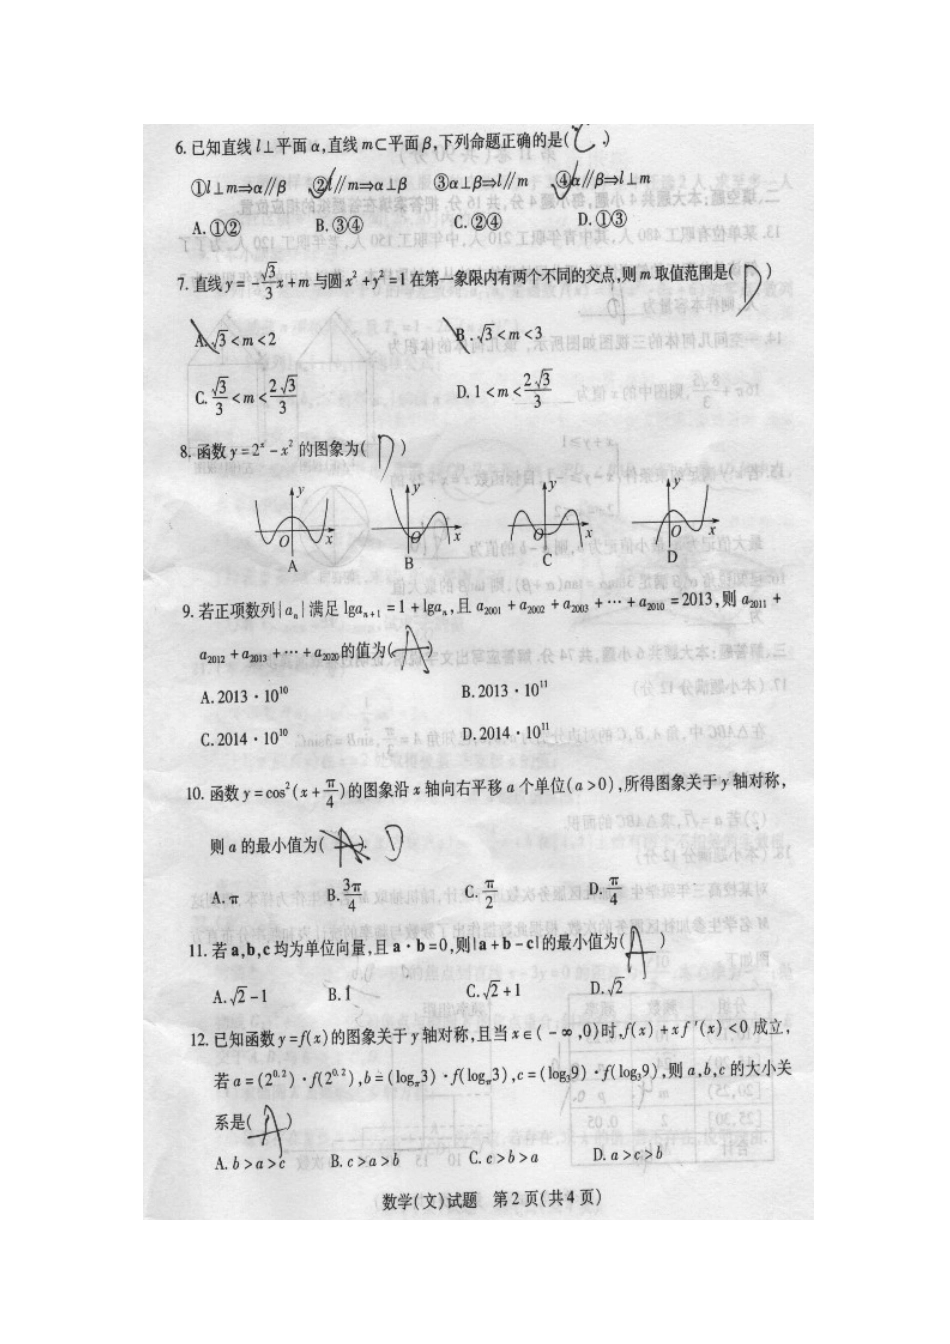 6. 已知直线 l⊥平面 α,直线 m⊂平面 β,下列命题正确的是( C )
①l⊥m⇒α∥β ②l∥m⇒α⊥β ③α⊥β⇒l∥m ④α∥β⇒l⊥m
A. ①② B. ③④ C. ②④ D. ①③
7. 直线 y = -√3/3 x + m 与圆 x² + y² = 1 在第一象限内有两个不同的交点,则 m 取值范围是( D )
A. √3 < m < 2 B. √3 < m < 3
C. √3/3 < m < 2√3/3 D. 1 < m < 2√3/3
8. 函数 y = 2ˣ - x² 的图象为( D )
y y y y
O x O x O x O x
A B C D
9. 若正项数列{aₙ}满足 lgaₙ₊₁ = 1 + lgaₙ,且 a₂₀₀₁ + a₂₀₀₂ + a₂₀₀₃ + ⋯ + a₂₀₁₀ = 2013,则 a₂₀₁₁ +
a₂₀₁₂ + a₂₀₁₃ + ⋯ + a₂₀₂₀ 的值为( A )
A. 2013 · 10¹⁰ B. 2013 · 10¹¹
C. 2014 · 10¹⁰ D. 2014 · 10¹¹
10. 函数 y = cos²(x + π/4)的图象沿 x 轴向右平移 a 个单位(a>0),所得图象关于 y 轴对称,
则 a 的最小值为( A D
A. π B. 3π/4 C. π/2 D. π/4
11. 若 a,b,c 均为单位向量,且 a · b = 0,则|a + b - c|的最小值为( A )
A. √2 - 1 B. 1 C. √2 + 1 D. √2
12. 已知函数 y = f(x)的图象关于 y 轴对称,且当 x∈( - ∞ ,0)时,f(x) + xf ′(x) < 0 成立,
若 a = (2⁰·²) · f(2⁰·²),b = (log_π3) · f(log_π3),c = (log₃9) · f(log₃9),则 a,b,c 的大小关
系是( A )
A. b > a > c B. c > a > b C. c > b > a D. a > c > b
数学(文)试题 第 2 页(共 4 页)